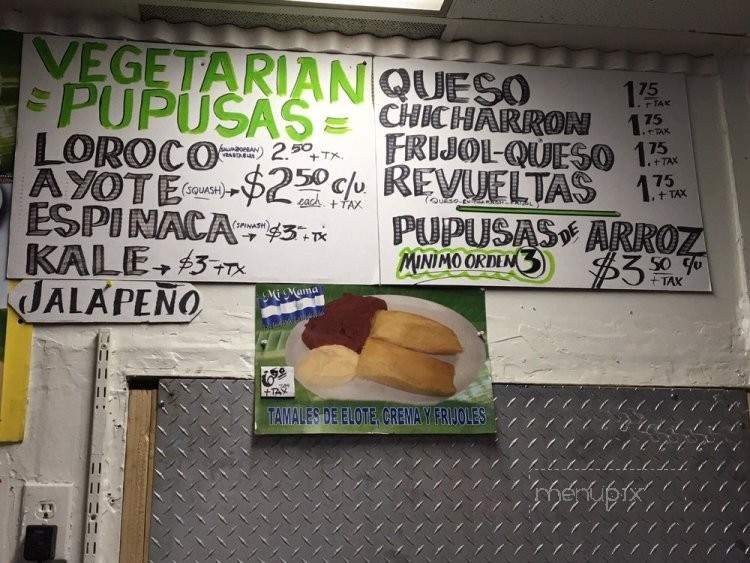 VEGETARIAN
= PUPUSAS =
LOROCO (SALVADOREAN VEGETABLES) 2.50 + TX.
AYOTE (SQUASH) → $2.50 c/u. each. + TAX
ESPINACA (SPINASH) → $3- + TX
KALE → $3- + TX
JALAPEÑO
QUESO 1.75 + TAX
CHICHARRON 1.75 + TAX
FRIJOL-QUESO 1.75 + TAX
REVUELTAS 1.75 + TAX
(QUESO-CHICHARRON-FRIJOL)
PUPUSAS DE ARROZ
MINIMO ORDEN 3 $3.50 c/u + TAX
Mi Mama
6.50 + TAX
TAMALES DE ELOTE, CREMA Y FRIJOLES
menupix